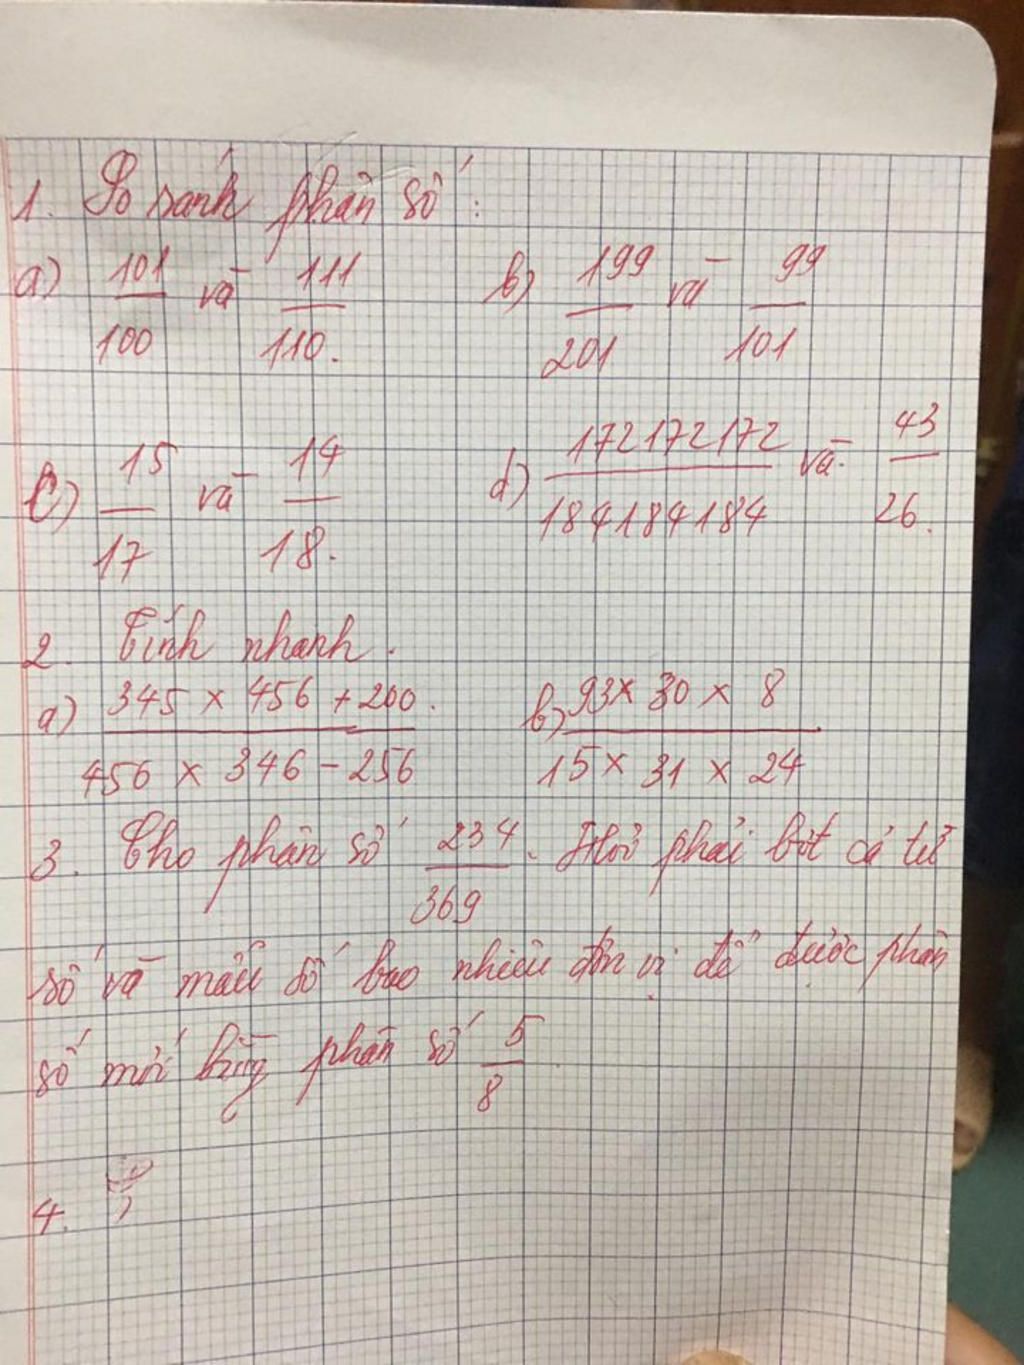 1. So sánh phân số:
a) 101/100 và 111/110. b) 199/201 và 99/101
c) 15/17 và 14/18. d) 172172172/184184184 và 43/26.
2. Tính nhanh.
a) 345 × 456 + 200 / 456 × 346 - 256 b) 93 × 30 × 8 / 15 × 31 × 24
3. Cho phân số 234/369. Hỏi phải bớt cả tử
số và mẫu số bao nhiêu đơn vị để được phân
số mới bằng phân số 5/8
4.